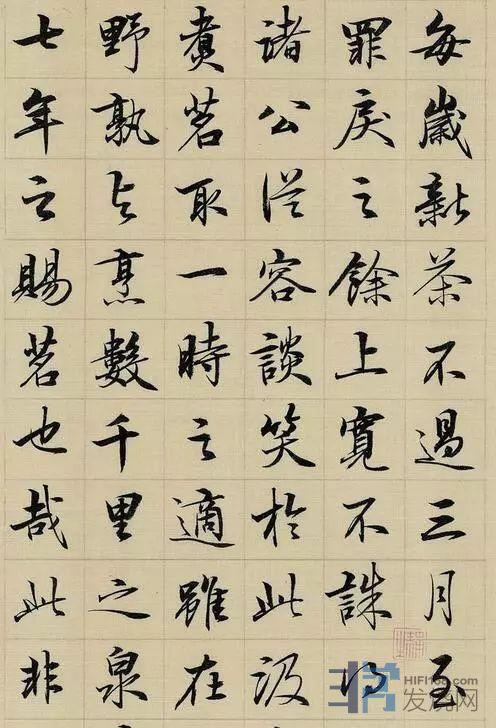 每歲新茶不過三月至
罪戾之餘上寬不誅得
諸公從容談笑於此汲
煑茗取一時之適雖在
野孰与烹數千里之泉
七年之賜茗也哉此非
HIFI168.com
发烧网